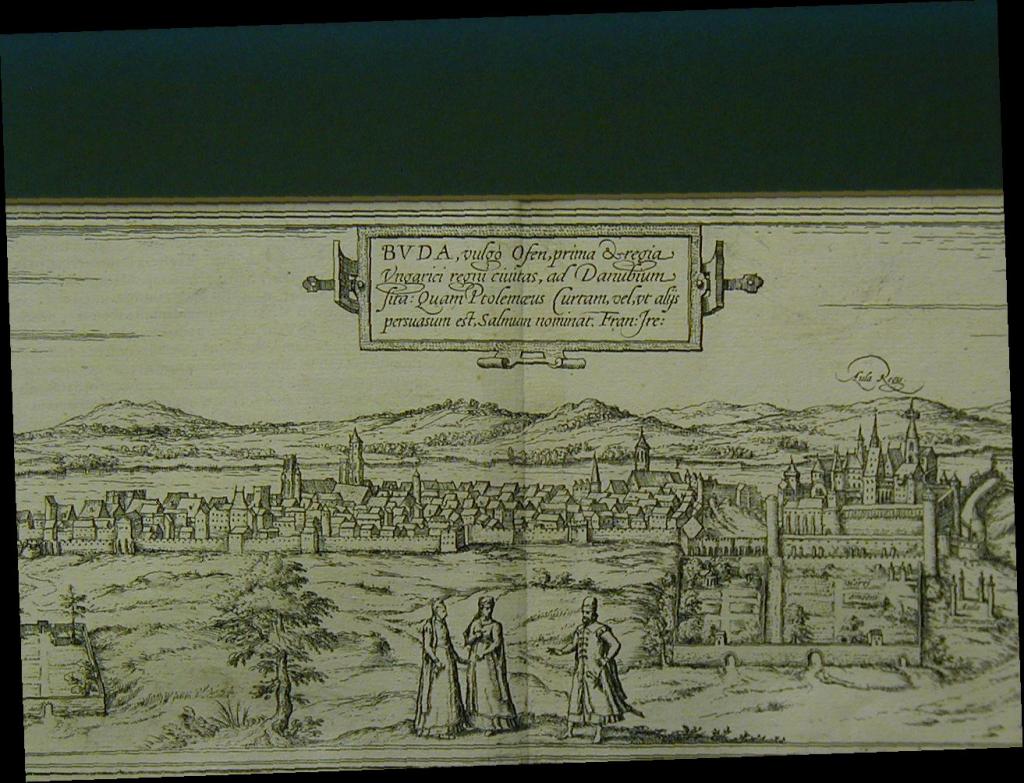 BVDA, vulgò Ofen, prima & regia
Vngarici regni ciuitas, ad Danubium
sita: Quam Ptolemæus Curtam, vel, vt alijs
persuasum est, Salmum nominat. Fran: Ire:
Aula Regis
Horti